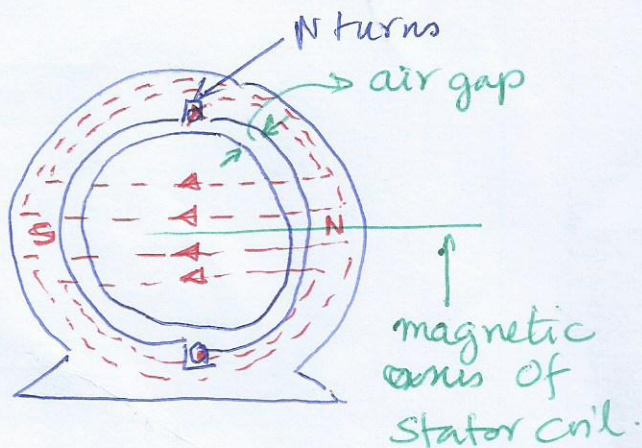 N turns
air gap
S
N
magnetic
axis of
stator coil.